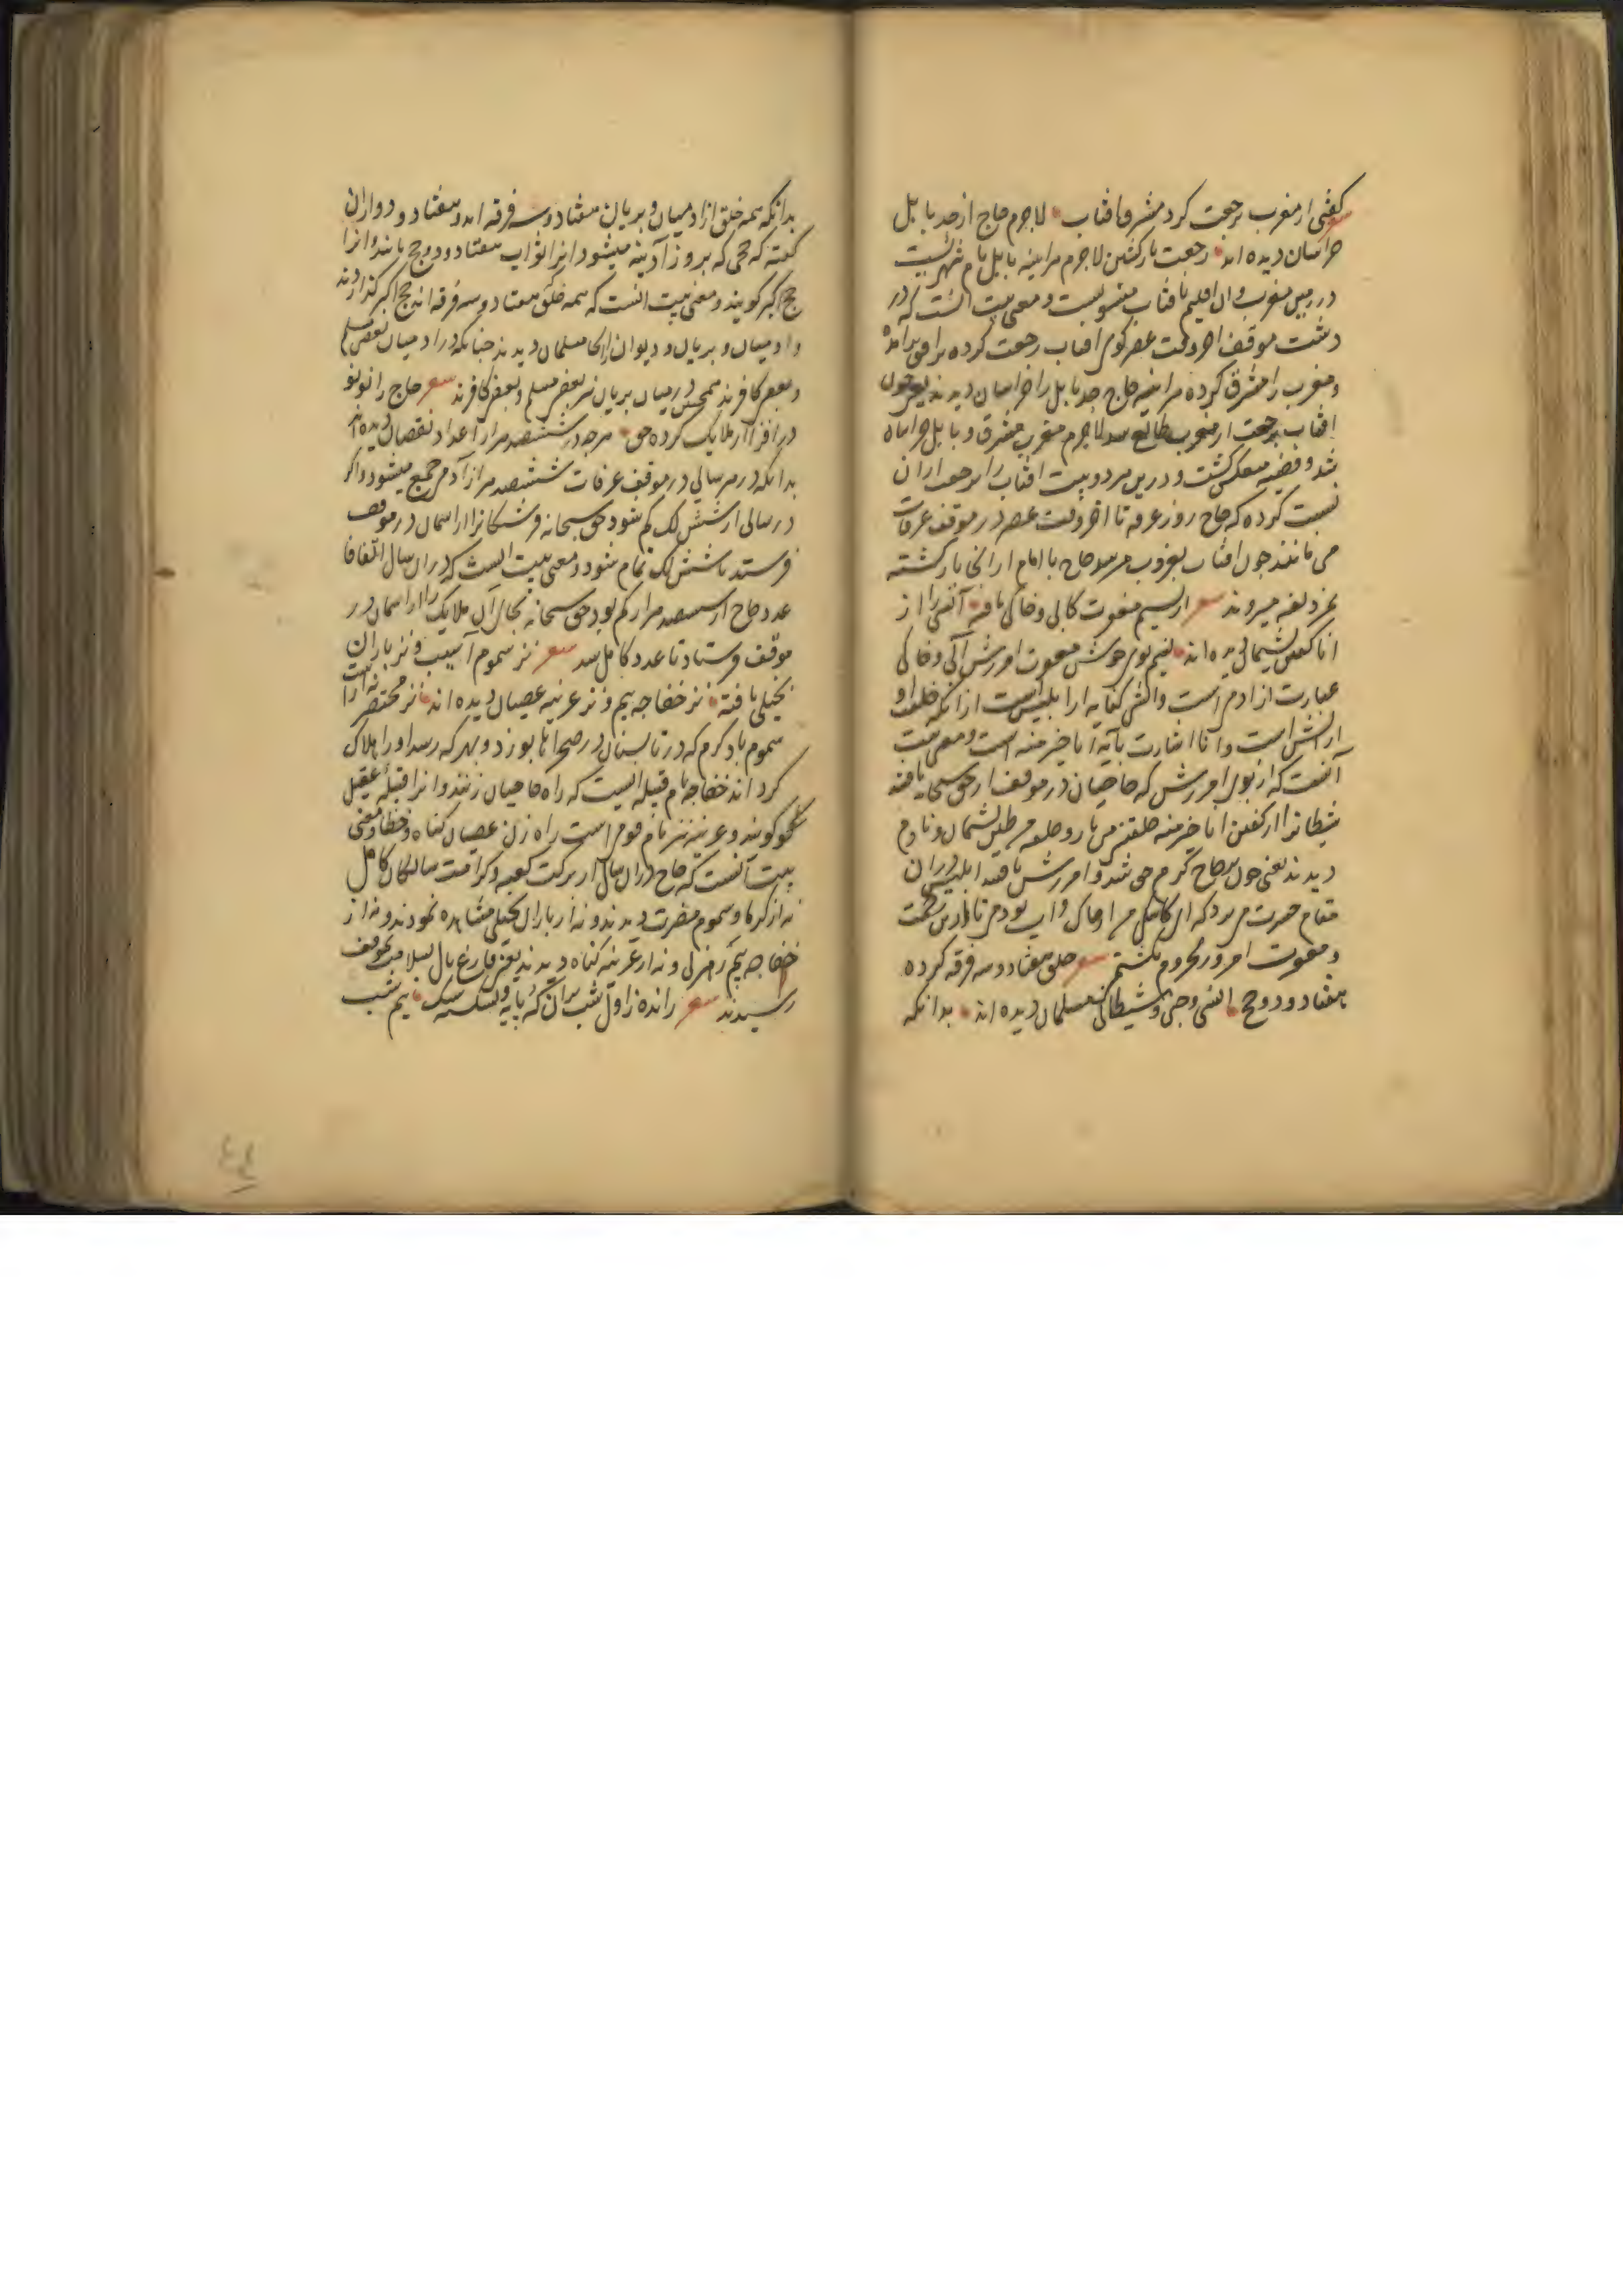 گفتی از مغرب رجعت کرد مشرق آفتاب لاجرم حاج از حد بابل
خراسان دیده اند رجعت بازگشتن لاجرم هراینه بابل نام شهریست
در زمین مغرب و آن اقلیم بآفتاب منسوبست و معنی بیت آنست که در
دشت موقف آخر وقت عصر گوی آفتاب رجعت کرده برافق برآمده
و مغرب را مشرق کرده هراینه حاج حد بابل را خراسان دیدند یعنی چون
آفتاب برجعت از مغرب طالع شد لاجرم مغرب مشرق و بابل خراسان
شد و قضیه منعکس گشت و درین هر دو بیت آفتاب را برجعت ازان
نسبت کرده که حاج روز عرفه تا آخر وقت عصر در موقف عرفات
می مانند چون آفتاب بغروب میرسد حاج با امام از انجا بازگشته
بمزدلفه میروند شعر از نسیم مغفرت کابی و خاکی یافته آتشی را از
انا گفتن پشیمان دیده اند نسیم بوی خوش مغفرت آمرزش آبی و خاکی
عبارت از آدم است و آتشی کنایه از ابلیس است از آنکه خلقت او
از آتش است و انا اشارت بآیه انا خیر منه است و معنی بیت
آنست که از بوی آمرزش که حاجیان در موقف از حق سبحانه یافتند
شیطانرا از گفتن انا خیر منه خلقتنی من نار و خلقته من طین پشیمان و نادم
دیدند یعنی چون هر حاج گرم می شد و آمرزش یافتند ابلیس دران
مقام حسرت می برد که ای کاشکی من از خاک و آب بودمی تا ازین رحمت
و مغفرت امروز محروم نگشتمی شعر خلق هفتاد و سه فرقه کرده
هفتاد و دو حج انسی و جنی و شیطانی مسلمان دیده اند بدانکه
بدانکه همه خلق از آدمیان و پریان هفتاد و سه فرقه اند و هفتاد و دو ازان
گفته که حجی که بروز آدینه میشود آنرا ثواب هفتاد و دو حج باشد و آنرا
حج اکبر گویند و معنی بیت آنست که همه خلق هفتاد و سه فرقه اند حج اکبر گذاردند
و آدمیان و پریان و دیوان را آنجا مسلمان دیدند چنانکه در آدمیان بعضی مسلم
و بعضی کافرند همچنین در میان پریان نیز بعضی مسلم و بعضی کافرند شعر حاج را نو نو
در افزا از ملایک کرده حق هرچه در ششصد هزار اعداد نقصان دیده اند
بدانکه در هر سالی در موقف عرفات ششصد هزار آدمی جمع میشود و اگر
در سالی از شش لک کم شود حق سبحانه فرشتگانرا از آسمان در موقف
فرستد تا شش لک تمام شود و معنی بیت آنست که دران سال اتفاقا
عدد حاج از ششصد هزار کم بود حق سبحانه بجای آن ملایک را از آسمان در
موقف فرستاد تا عدد کامل شد شعر نز سموم آسیب و نز باران
بخیلی یافته نز خفاجه بیم و نز غزیه عصیان دیده اند نز مختصر نه از است
سموم باد گرم که در تابستان در صحراها بوزد و بهر که رسد او را هلاک
گرداند خفاجه نام قبیله ایست که راه حاجیان زنند و آنرا قبیله عقیل
نیز گویند و غزیه نیز نام قومی است راه زن عصیان گناه و خطا و معنی
بیت آنست که حاج دران سال از برکت کعبه و کرامت سالکان کامل
نه از گرما و سموم مضرت دیدند و نه از باران بخیلی مشاهده نمودند و نه از
خفاجه بیم رهزنی و نه از غزیه گناه دیدند یعنی فارغ بال بسلامت بموقف
رسیدند شعر رانده ز اول شب بران که پایه و بشکسته سنگ نیم شب